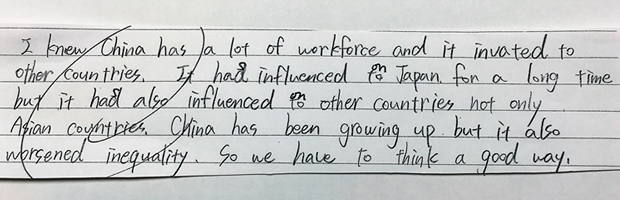 I knew China has a lot of workforce and it invated to
other countries. It had influenced on Japan for a long time
but it had also influenced on other countries not only
Asian countries. China has been growing up but it also
worsened inequality. So we have to think a good way.